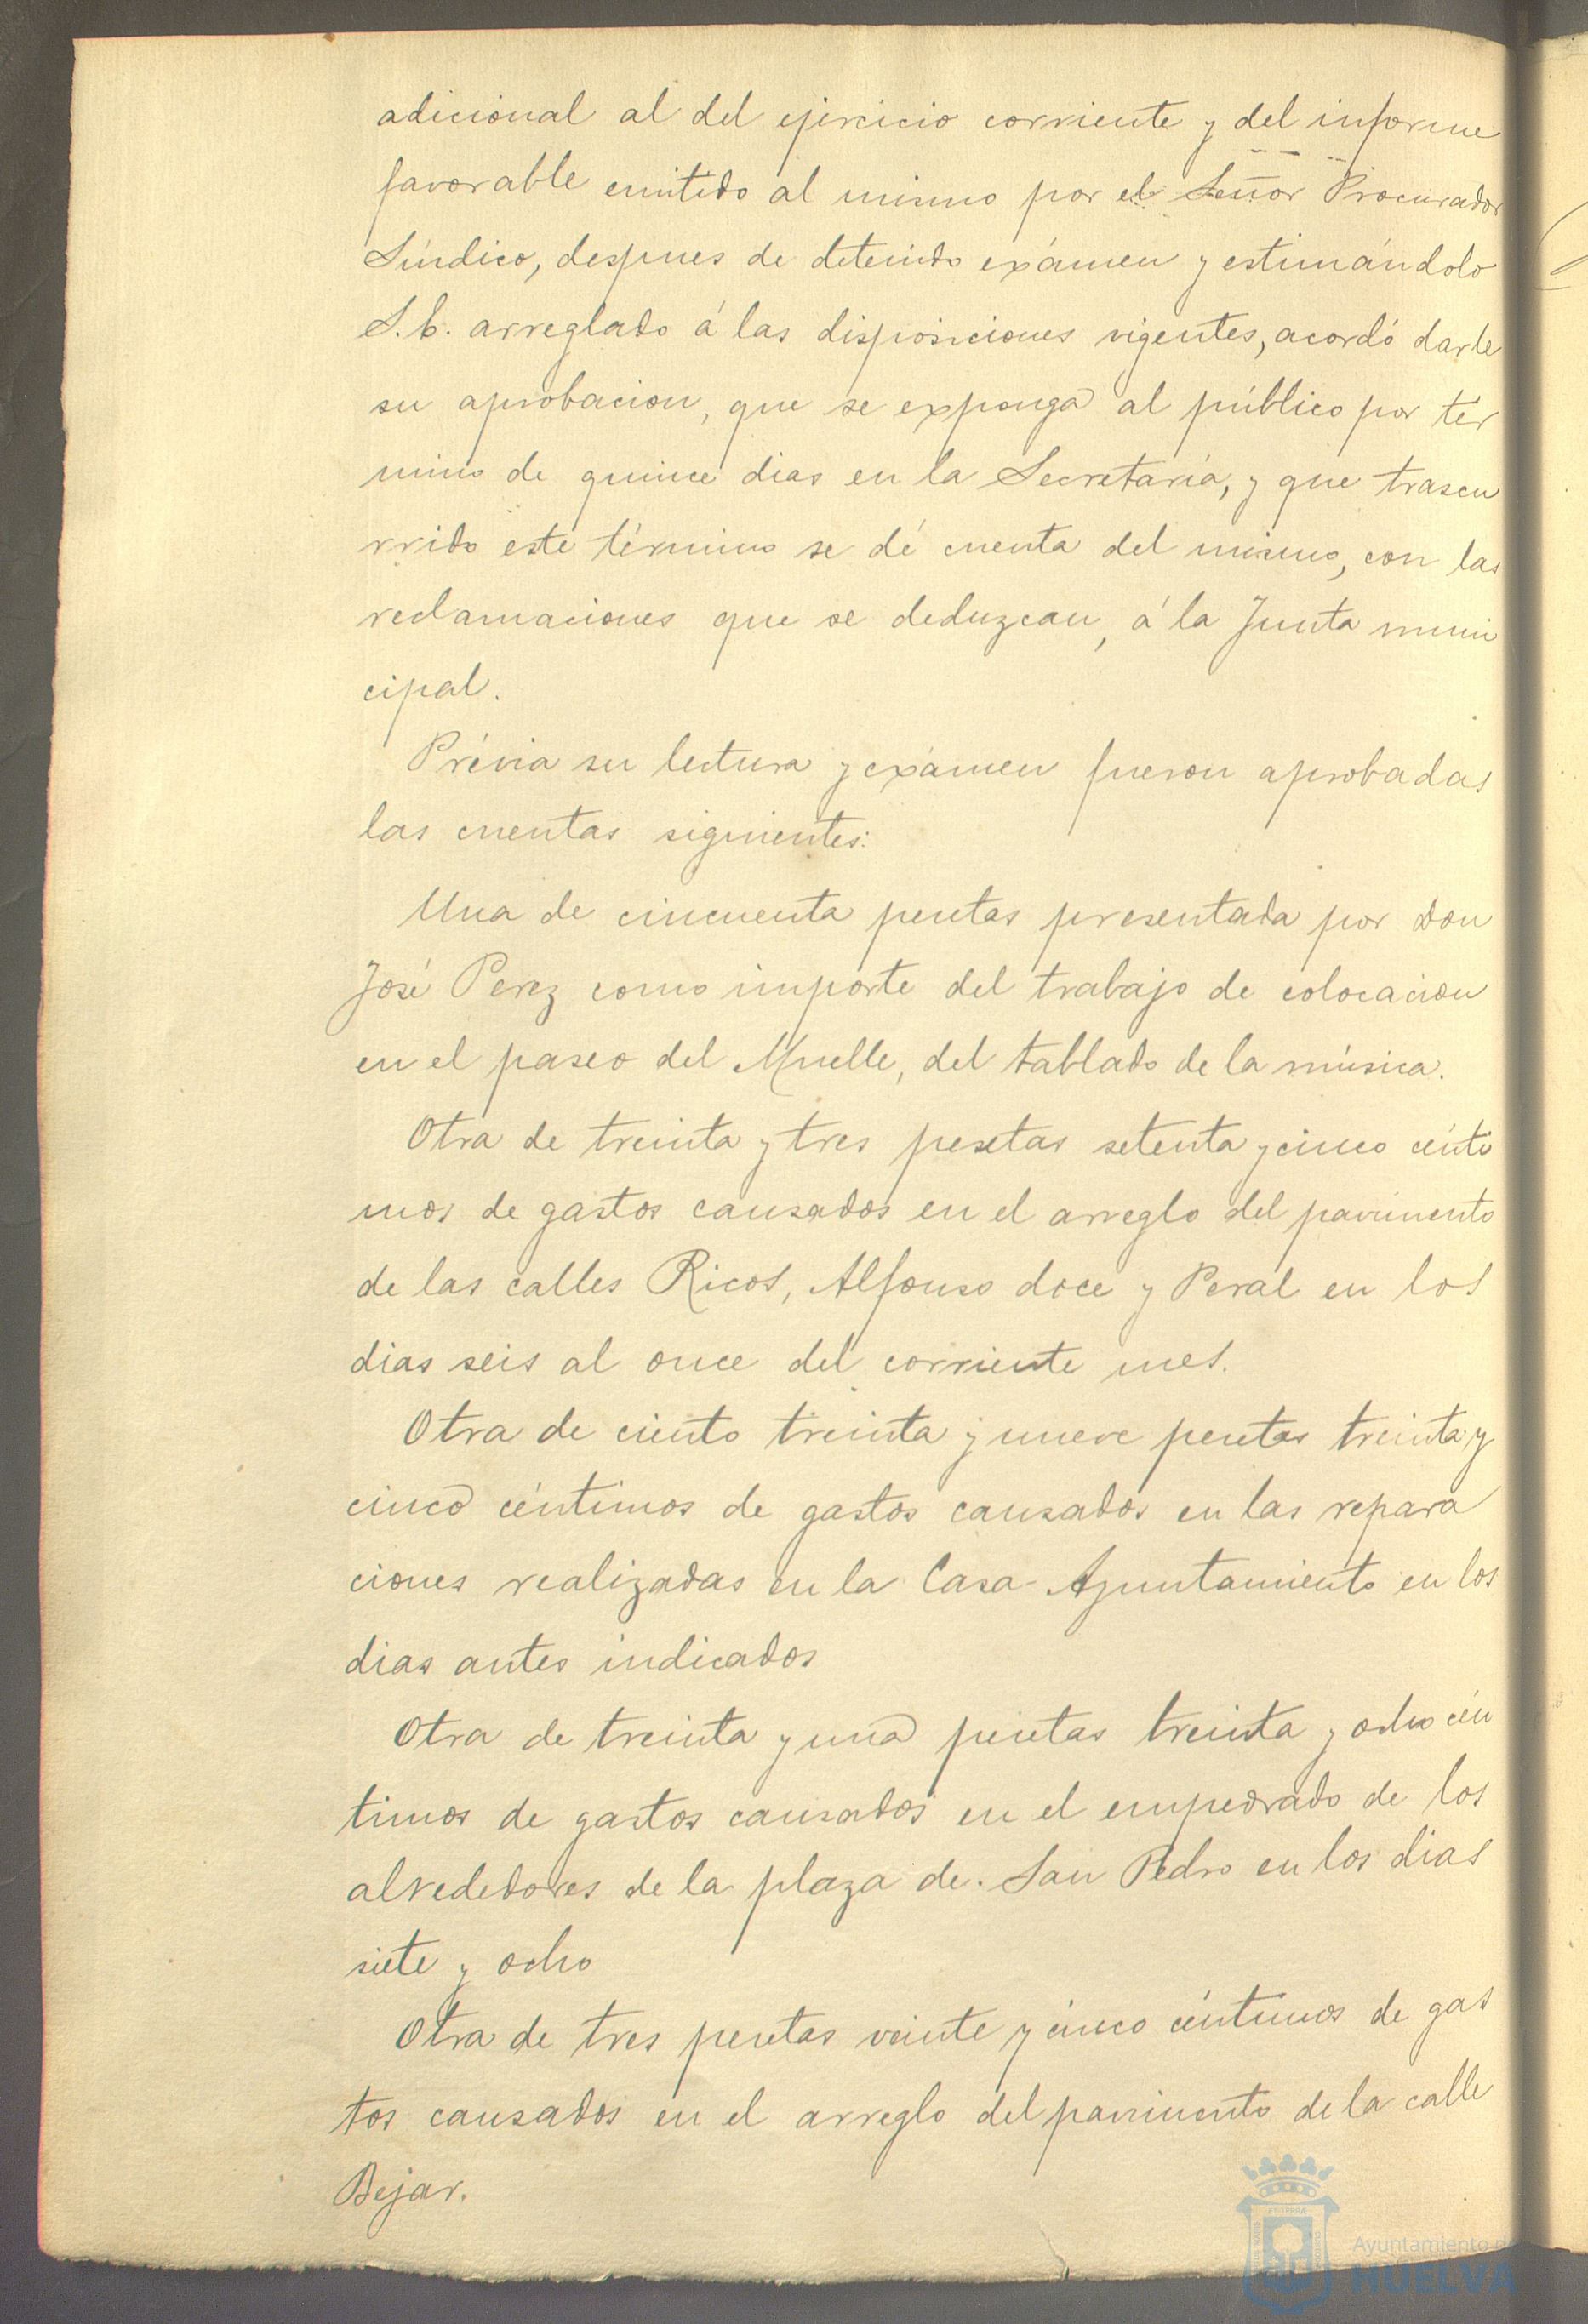 adicional al del ejercicio corriente y del informe
favorable emitido al mismo por el Señor Procurador
Síndico, despues de detenido exámen y estimándolo
S. E. arreglado á las disposiciones vigentes, acordó darle
su aprobacion, que se exponga al público por tér
mino de quince dias en la Secretaría, y que trascu
rrido este término se dé cuenta del mismo, con las
reclamaciones que se deduzcan, á la Junta muni
cipal.
Prévia su lectura y exámen fueron aprobadas
las cuentas siguientes:
Una de cincuenta pesetas presentada por Don
José Perez como importe del trabajo de colocacion
en el paseo del Muelle, del tablado de la música.
Otra de treinta y tres pesetas setenta y cinco cénti
mos de gastos causados en el arreglo del pavimento
de las calles Ricos, Alfonso doce y Peral en los
dias seis al once del corriente mes.
Otra de ciento treinta y nueve pesetas treinta y
cinco céntimos de gastos causados en las repara
ciones realizadas en la Casa Ayuntamiento en los
dias antes indicados
Otra de treinta y una pesetas treinta y ocho cén
timos de gastos causados en el empedrado de los
alrededores de la plaza de San Pedro en los dias
siete y ocho
Otra de tres pesetas veinte y cinco céntimos de gas
tos causados en el arreglo del pavimento de la calle
Bejar.
Ayuntamiento de
HUELVA